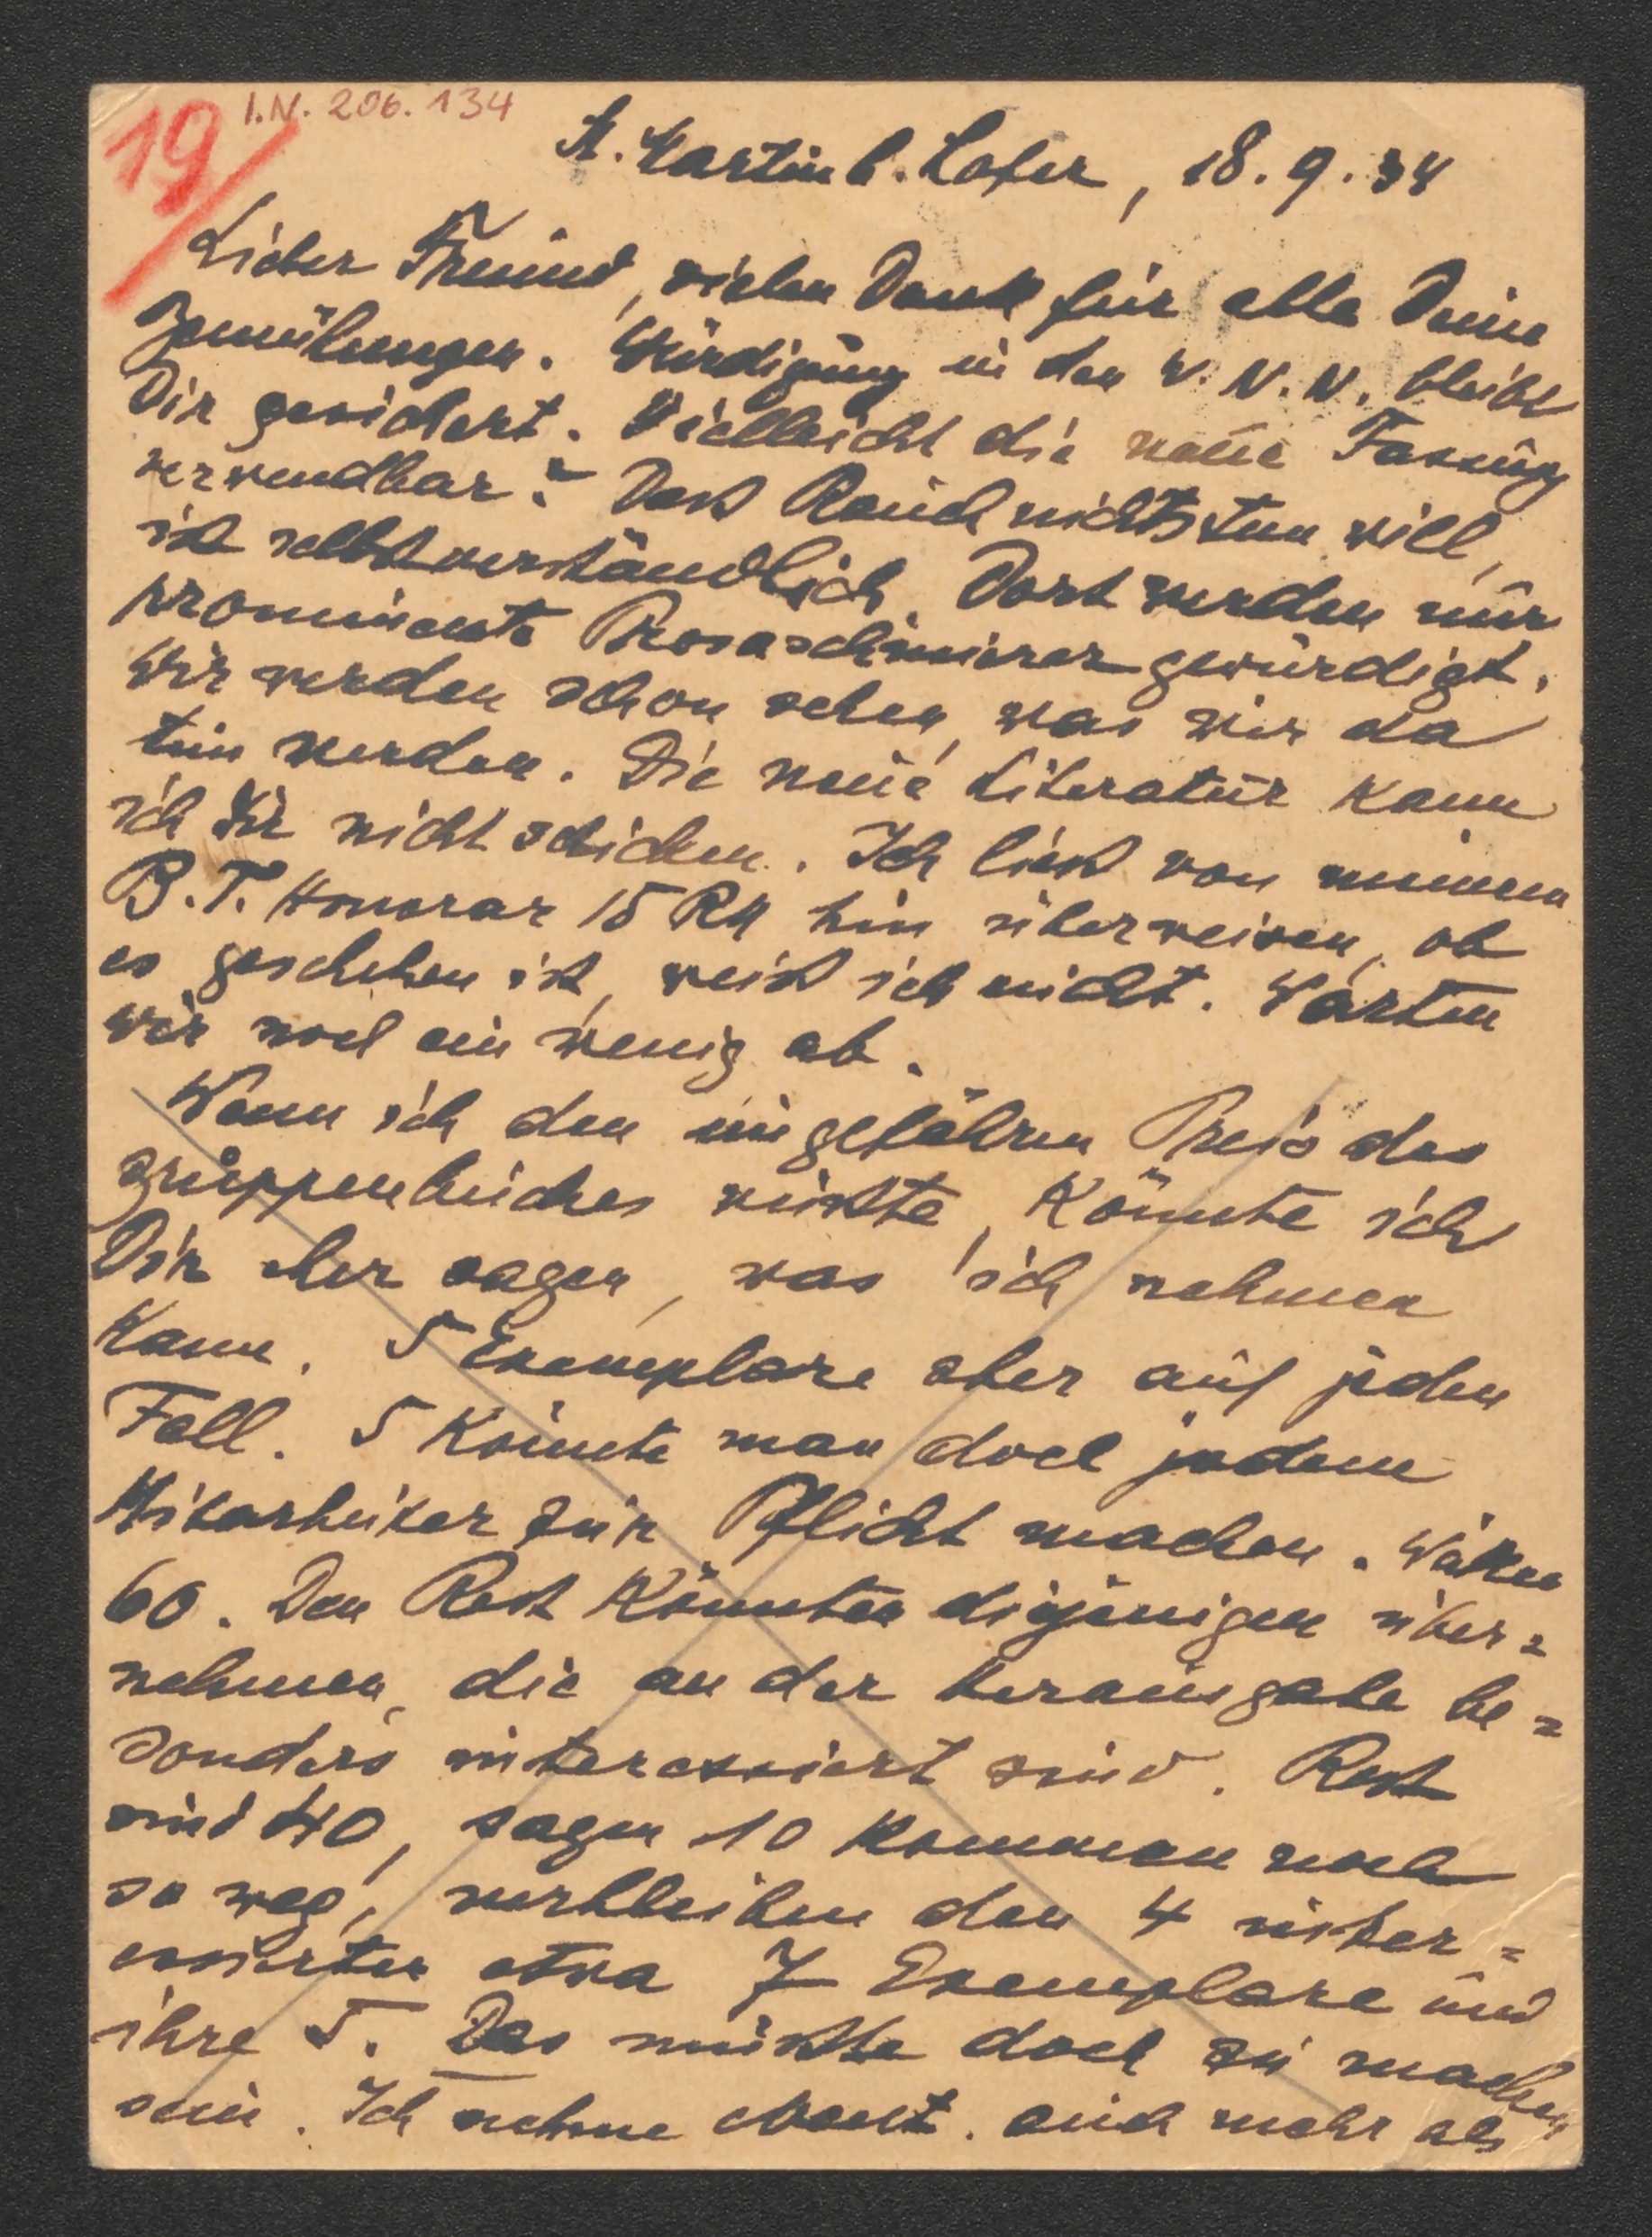 19/
I.N. 206.134
St. Martin b. Lofer, 18.9.34
Lieber Freund, vielen Dank für alle Deine
Bemühungen. Würdigung in den W.N.N. bleibt
Dir gesichert. Vielleicht die neue Fassung
verwendbar? Dass Rauch nichts tun will,
ist selbstverständlich. Dort werden nur
prominente Prosaschmierer gewürdigt.
Wir werden schon sehen, was wir da
tun werden. Die neue Literatur kann
ich Dir nicht schicken. Ich liess von meinem
B.T. Honorar 15 RM hin überweisen, ob
es geschehen ist, weiss ich nicht. Warten
wir noch ein wenig ab.
Wenn ich den ungefähren Preis des
Gruppenbuches wüsste, könnte ich
Dir eher sagen, was ich nehmen
kann. 5 Exemplare aber auf jeden
Fall. 5 könnte man doch jedem
Mitarbeiter zur Pflicht machen. Wären
60. Den Rest könnten diejenigen über=
nehmen, die an der Herausgabe be=
sonders interessiert sind. Rest
sind 40, sagen 10 kommen noch
so weg, verbleiben den 4 inter=
essierten etwa 7 Exemplare und
ihre 5. Das müsste doch zu machen
sein. Ich nehme event. auch mehr als